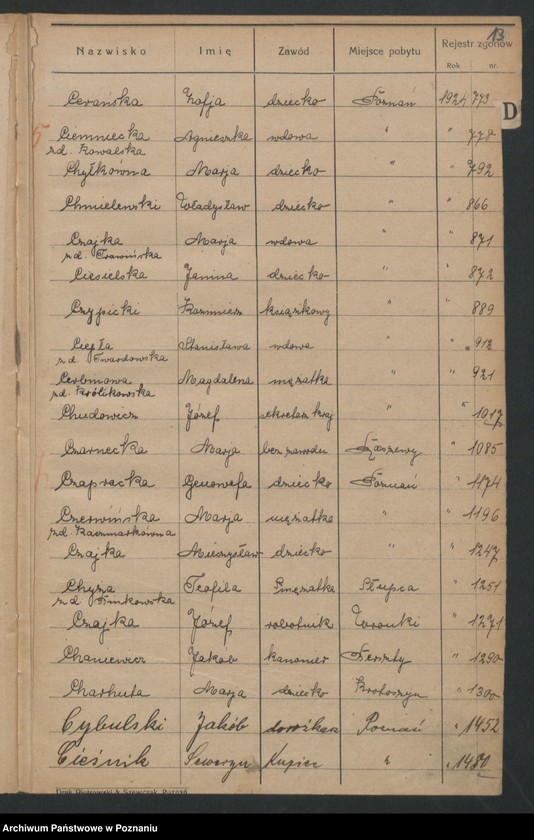 13
Nazwisko Imię Zawód Miejsce pobytu Rejestr zgonów
Rok nr.
D
Cerańska Zofja dziecko Poznań 1924 773
5
Ciemniecka Agnieszka wdowa " " 778
zd. Kowalska
Chyłkówna Marja dziecko " " 792
Chmielewski Władysław dziecko " " 866
Czajka Marja wdowa " " 871
zd. Trawińska
Ciesielska Janina dziecko " " 872
Czypicki Kazimierz książkowy " " 889
Ciepła Stanisława wdowa " " 912
zd. Twardowska
Magdalena mężatka " " 921
zd. Królikowska
Chudowicz Józef sekretarz kraj " " 1017
Czarnecka Marja bez zawodu " 1085
Czapracka Genowefa dziecko Poznań " 1174
Czerwińska Marja mężatka " " 1196
zd. Kaczmarkówna
Czajka Mieczysław dziecko " " 1247
Chyza Teofila mężatka Słupca " 1251
zd.
Czajka Józef robotnik Wronki " 1271
Chaniewicz Jakób kanonier " 1290
Charhuta Marja dziecko Krotoszyn " 1300
Cybulski Jakób dorożkarz Poznań " 1452
Cieśnik Seweryn Kupiec " " 1480
Druk. Piotrowski & Szewczak, Poznań
Archiwum Państwowe w Poznaniu